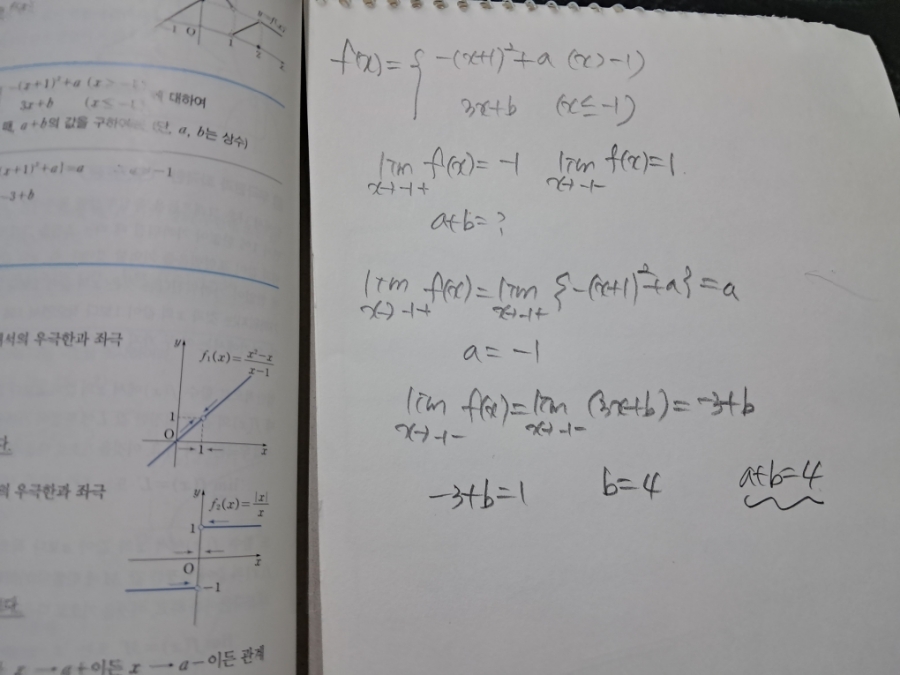 -1 O 1 2 x
-(x+1)²+a (x>-1)
3x+b (x≤-1) 에 대하여
때, a+b의 값을 구하여 (단, a, b는 상수)
(x+1)²+a}=a ∴ a=-1
-3+b
에서의 우극한과 좌극
y
f₁(x)=x²-x/x-1
1
O 1 x
다.
의 우극한과 좌극
y
f₂(x)=|x|/x
1
O x
-1
x → a+이든 x → a-이든 관계
f(x)={ -(x+1)²+a (x>-1)
3x+b (x≤-1)
lim x→-1+ f(x)=-1 lim x→-1- f(x)=1.
a+b=?
lim x→-1+ f(x)=lim x→-1+ {-(x+1)²+a}=a
a=-1
lim x→-1- f(x)=lim x→-1- (3x+b)=-3+b
-3+b=1 b=4 a+b=4